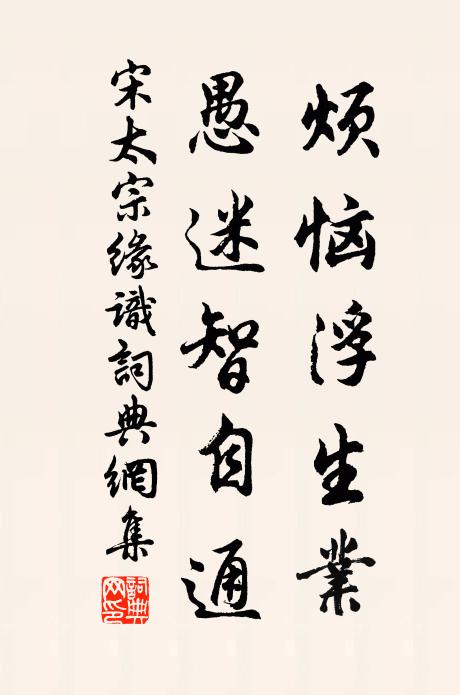 烦恼浮生業
愚迷智自通
宋太宗缘識詞典網集
詞典网印